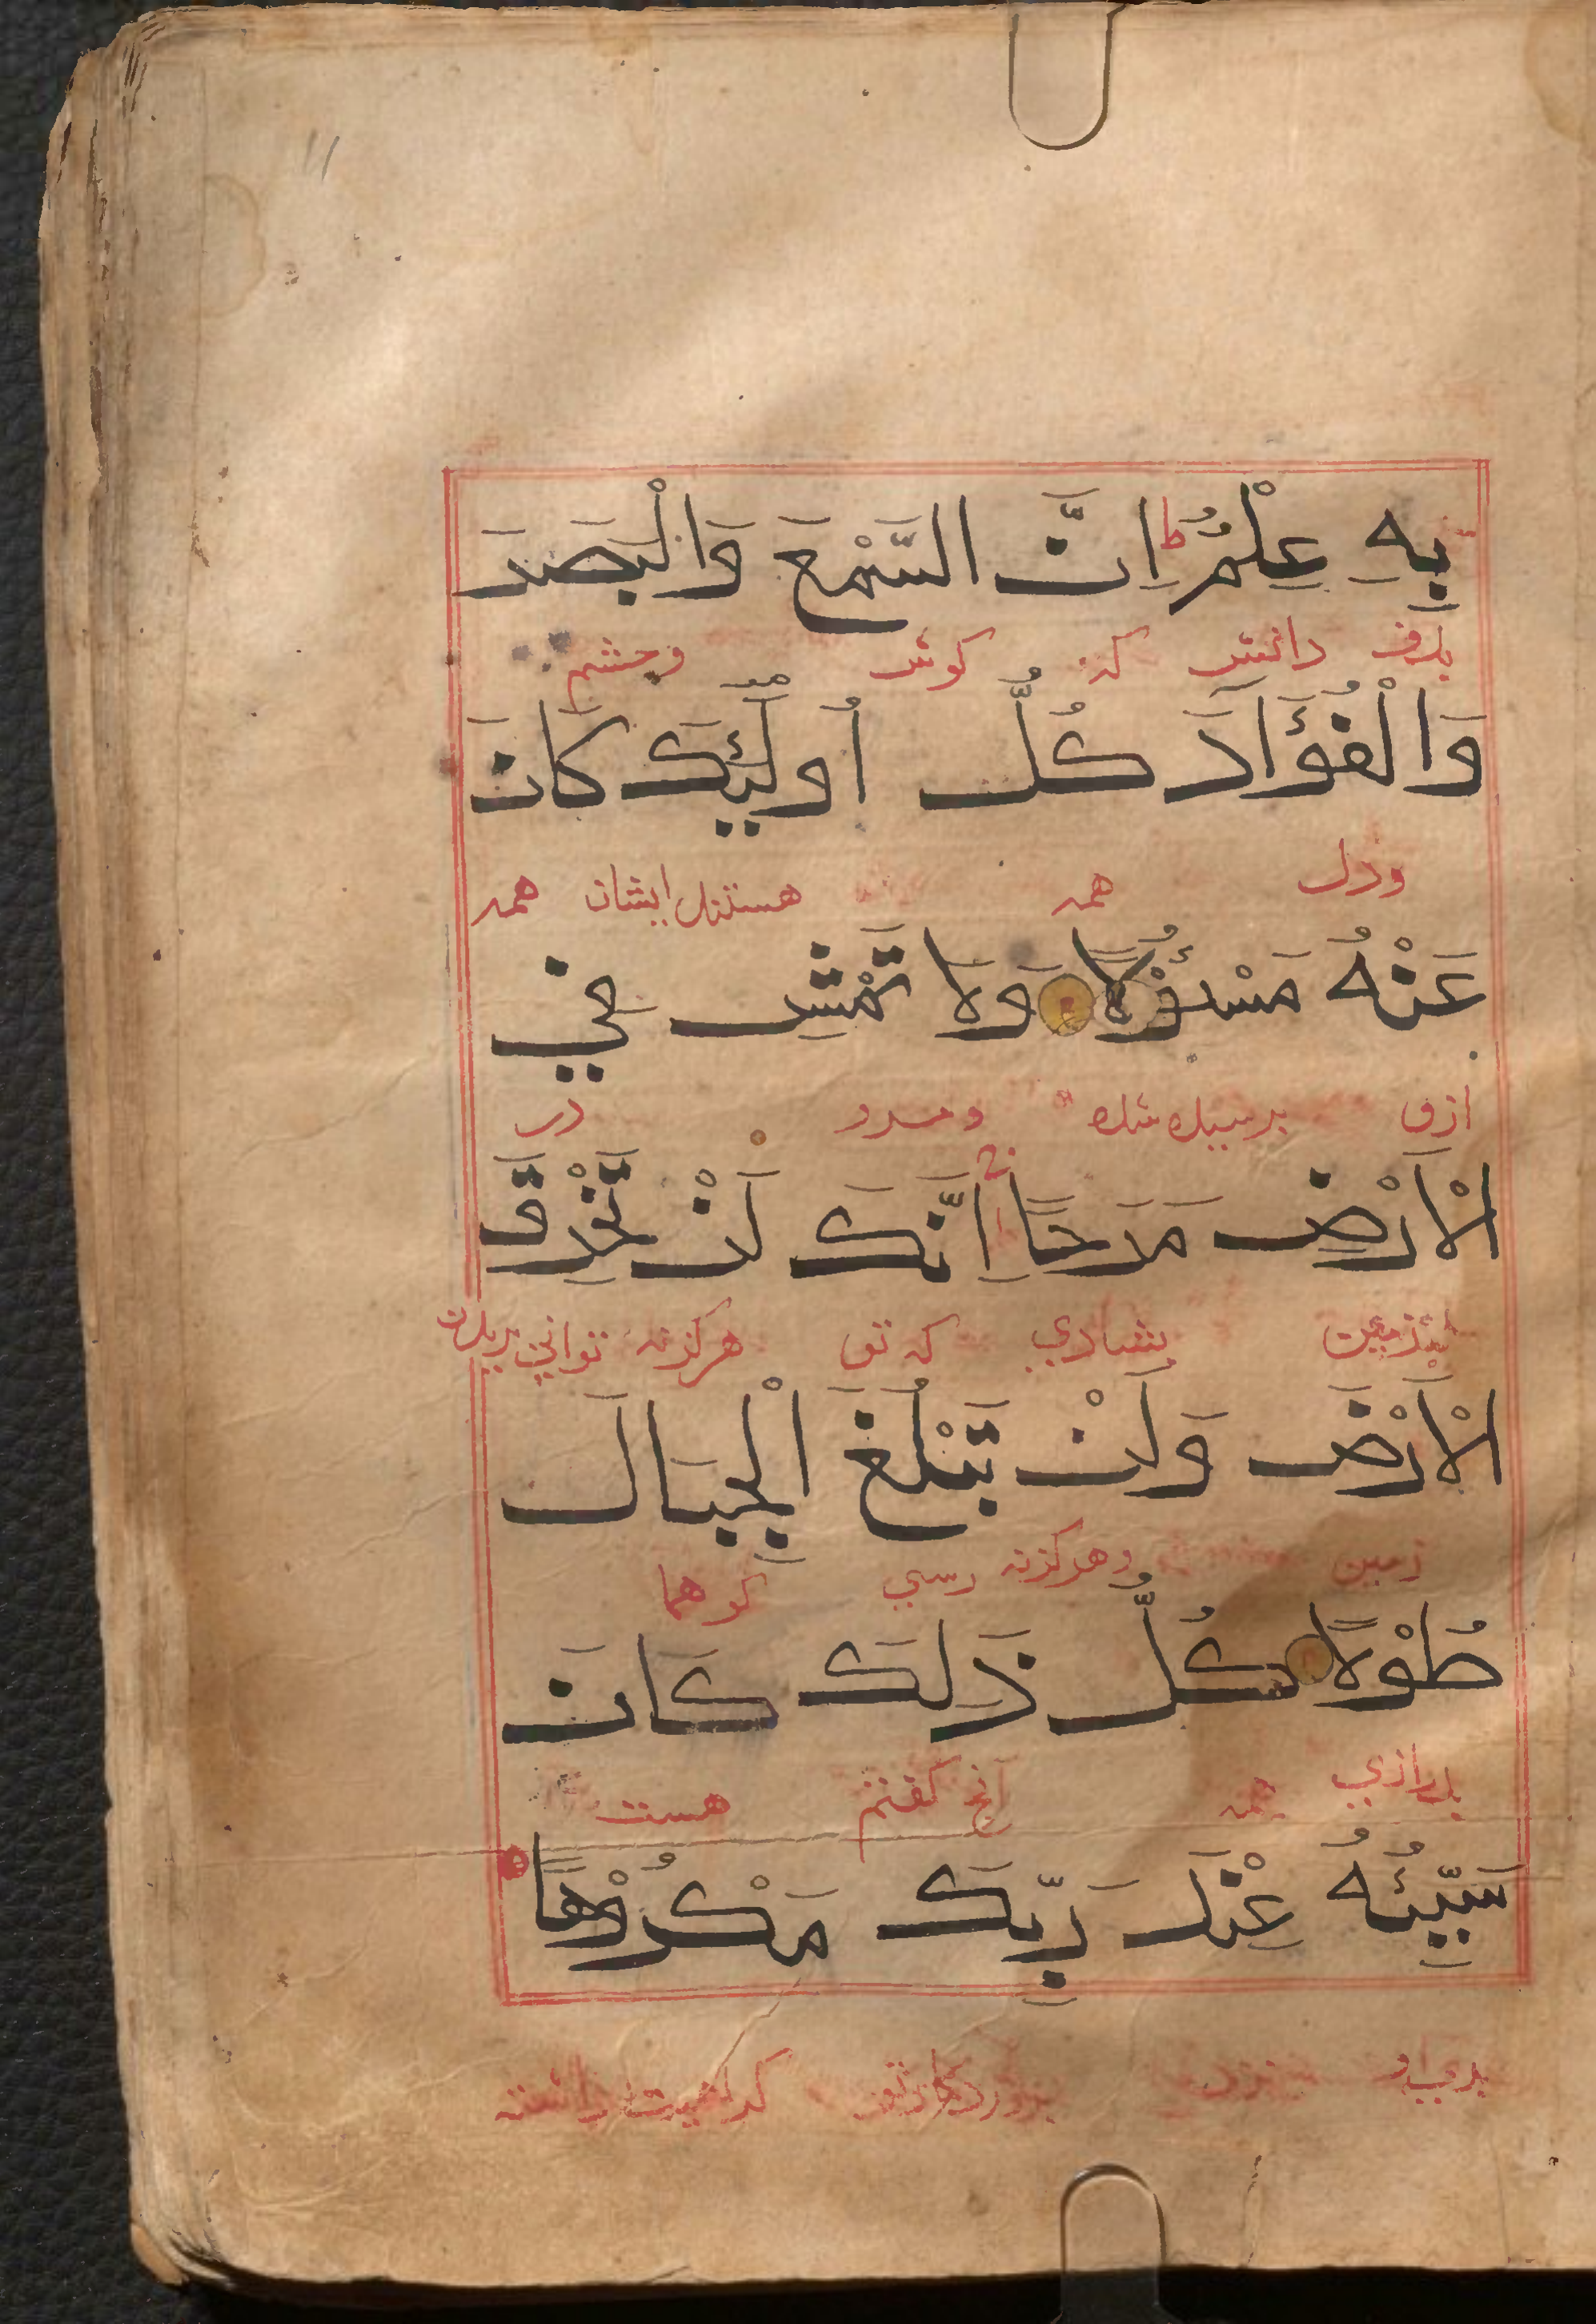 بِهِ عِلْمٌ ط اِنَّ السَّمْعَ وَالْبَصَرَ
بدان دانش كه كوش وچشم
وَالْفُؤَادَ كُلُّ اُولٰٓئِكَ كَانَ
ودل همه هستند ايشان همه
عَنْهُ مَسْئُوْلًا وَلَا تَمْشِ فِي
ازو پرسيده شده ومرو در
الْاَرْضِ مَرَحًا اِنَّكَ لَنْ تَخْرِقَ
زمين بشادي كه تو هركزنه تواني بريدن
الْاَرْضَ وَلَنْ تَبْلُغَ الْجِبَالَ
زمين وهركزنه رسي كوهها
طُوْلًا كُلُّ ذٰلِكَ كَانَ
بدرازي همه آنچ كفتم هست
سَيِّئُهُ عِنْدَ رَبِّكَ مَكْرُوْهًا
نزد كراهيت داشته